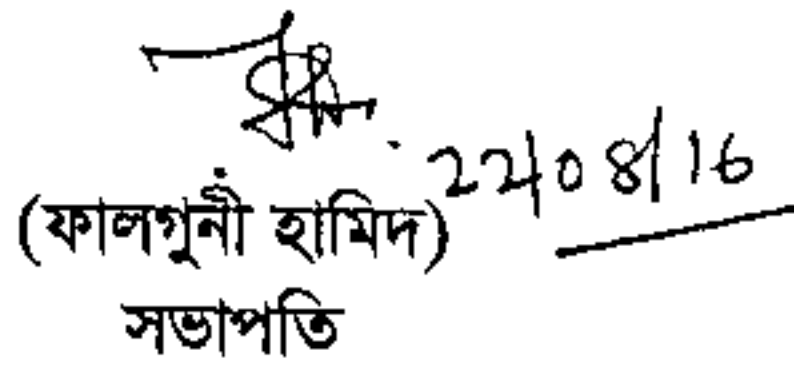 22/08/16
(ফালগুনী হামিদ)
সভাপতি